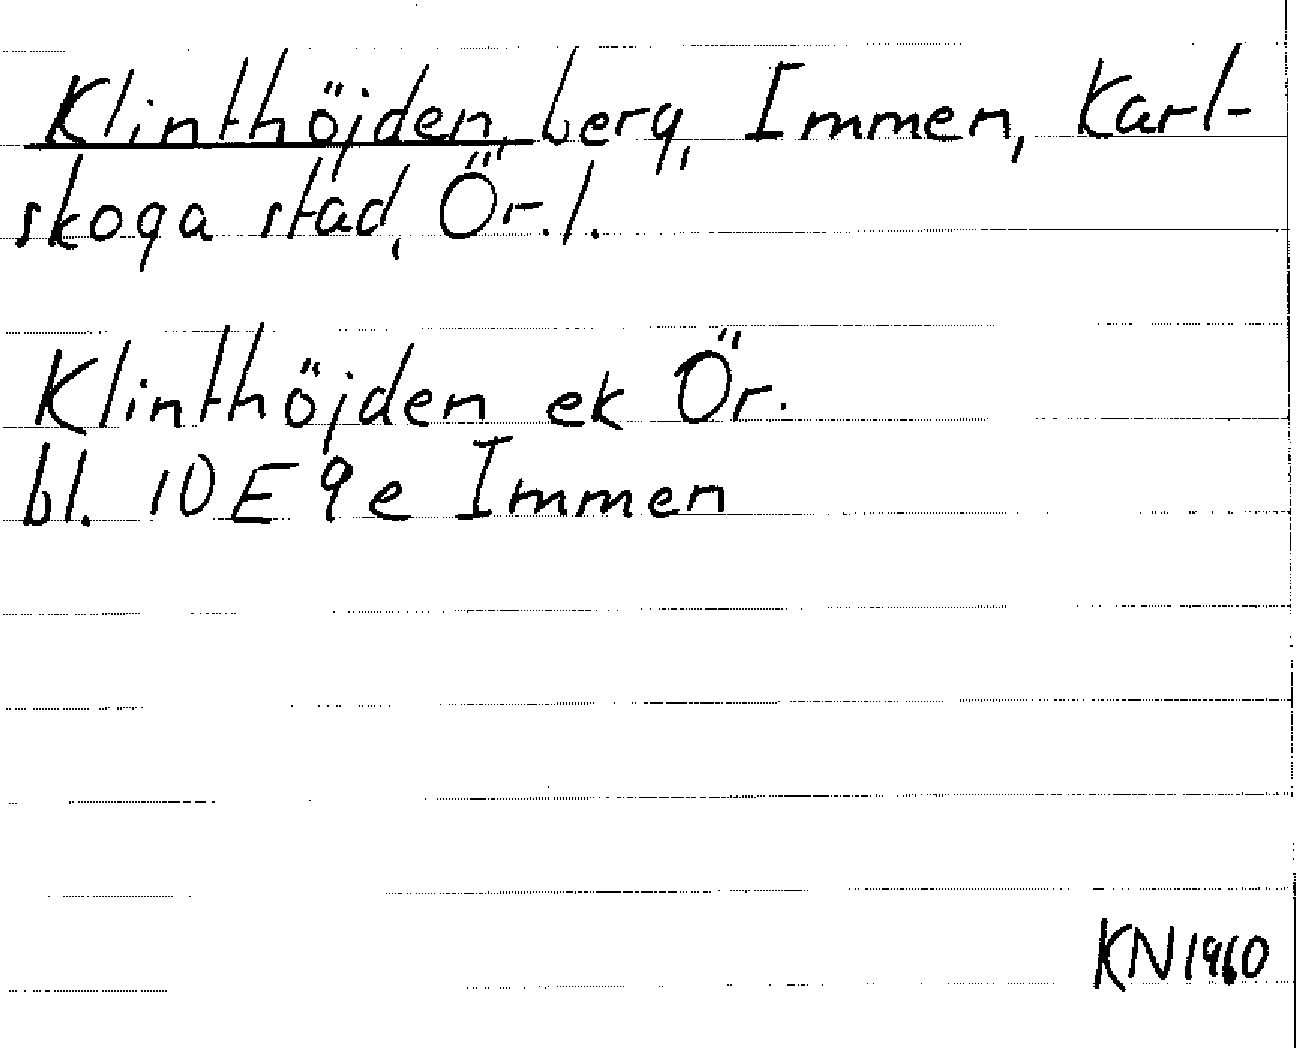 Klinthöjden, berg, Immen, Karl-
skoga stad, Ör. l.
Klinthöjden ek Ör.
bl. 10 E 9 e Immen
KN 1960